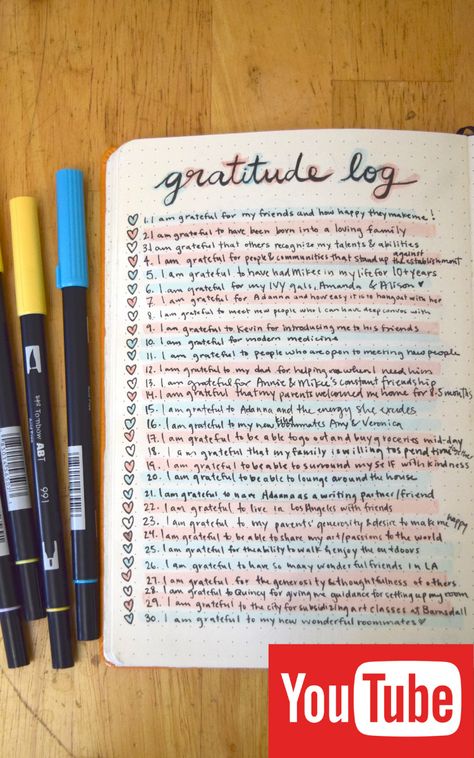 gratitude log
1. I am grateful for my friends and how happy they make me!
2. I am grateful to have been born into a loving family
3. I am grateful that others recognize my talents & abilities
4. I am grateful for people & communities that stand up against the establishment
5. I am grateful to have had Mikee in my life for 10+ years
6. I am grateful for my IVY gals, Amanda & Alison
7. I am grateful for Adanna and how easy it is to hang out with her
8. I am grateful to meet new people who I can have deep convos with
9. I am grateful to Kevin for introducing me to his friends
10. I am grateful for modern medicine
11. I am grateful to people who are open to meeting new people
12. I am grateful to my dad for helping me when I need him
13. I am grateful for Annie & Mike's constant friendship
14. I am grateful that my parents welcomed me home for 8.5 months
15. I am grateful to Adanna and the energy she exudes
16. I am grateful to my new roommates Amy & Veronica
17. I am grateful to be able to go out and buy groceries mid-day
18. I am grateful that my family is willing to spend time
19. I am grateful to be able to surround myself with kindness
20. I am grateful to be able to lounge around the house
21. I am grateful to have Adanna as a writing partner/friend
22. I am grateful to live in Los Angeles with friends
23. I am grateful to my parents' generosity & desire to make me happy
24. I am grateful to be able to share my art/passions to the world
25. I am grateful for the ability to walk & enjoy the outdoors
26. I am grateful to have so many wonderful friends in LA
27. I am grateful for the generosity & thoughtfulness of others.
28. I am grateful to Quincy for giving me guidance for setting up my room
29. I am grateful to the city for subsidizing art classes at Barnsdall
30. I am grateful to my new wonderful roommates
Tombow ABT
991
YouTube